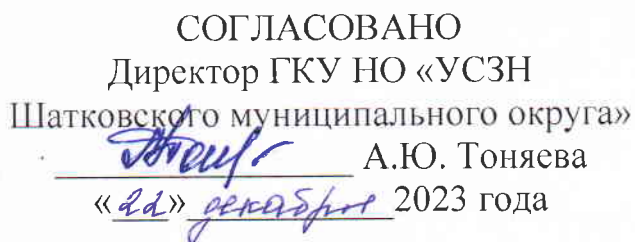 СОГЛАСОВАНО
Директор ГКУ НО «УСЗН
Шатковского муниципального округа»
А.Ю. Тоняева
«22» декабря 2023 года